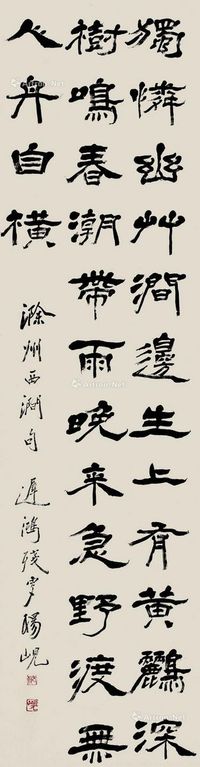 獨憐幽艸澗邊生上有黃鸝深
樹鳴春潮帶雨晚来急野渡無
人舟自橫
滁州西澗句 遲鴻殘叟楊峴